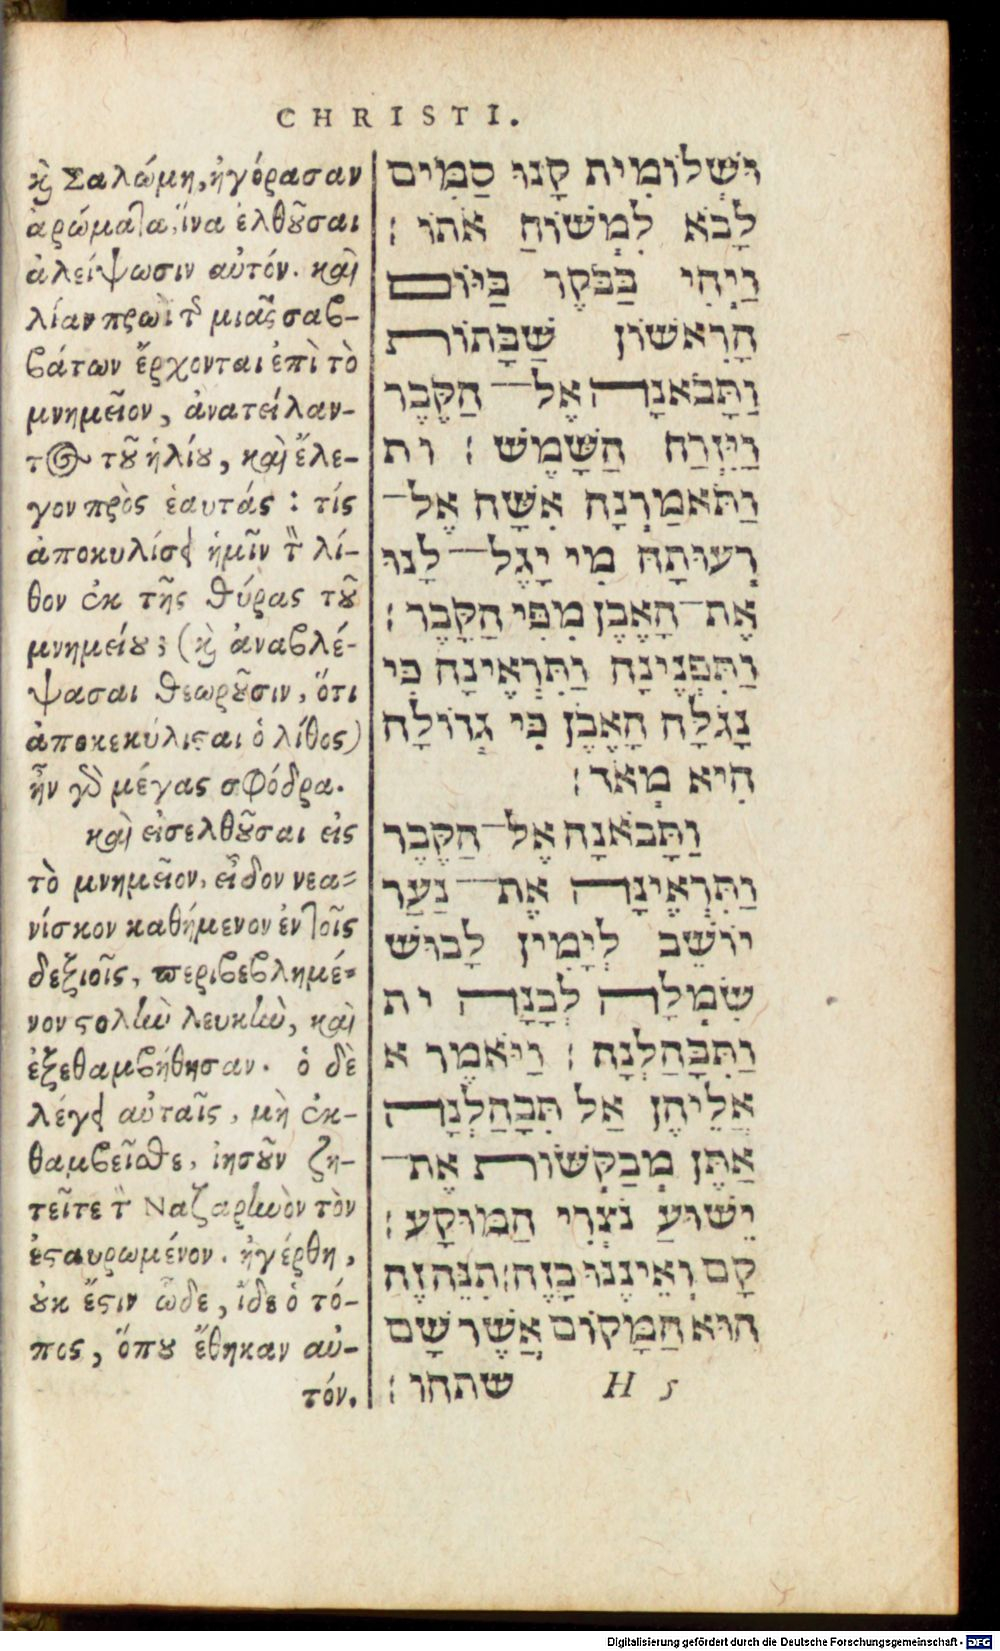 CHRISTI.
καὶ Σαλώμη, ἠγόρασαν
ἀρώματα, ἵνα ἐλθοῦσαι
ἀλείψωσιν αὐτόν. καὶ
λίαν πρωὶ τῆς μιᾶς σαβ-
βάτων ἔρχονται ἐπὶ τὸ
μνημεῖον, ἀνατείλαν-
τος τοῦ ἡλίου, καὶ ἔλε-
γον πρὸς ἑαυτάς: τίς
ἀποκυλίσει ἡμῖν τὸν λί-
θον ἐκ τῆς θύρας τοῦ
μνημείου; (καὶ ἀναβλέ-
ψασαι θεωροῦσιν, ὅτι
ἀποκεκύλισται ὁ λίθος)
ἦν γὰρ μέγας σφόδρα.
καὶ εἰσελθοῦσαι εἰς
τὸ μνημεῖον, εἶδον νεα-
νίσκον καθήμενον ἐν τοῖς
δεξιοῖς, περιβεβλημέ-
νον στολὴν λευκὴν, καὶ
ἐξεθαμβήθησαν. ὁ δὲ
λέγει αὐταῖς, μὴ ἐκ-
θαμβεῖσθε, ἰησοῦν ζη-
τεῖτε τὸν Ναζαρηνὸν τὸν
ἐσταυρωμένον. ἠγέρθη,
οὐκ ἔστιν ὧδε, ἴδε ὁ τό-
πος, ὅπου ἔθηκαν αὐ-
τόν.
וּשְׁלוֹמִית קָנוּ סַמִּים
לָבֹא לִמְשׁוֹחַ אֹתוֹ׃
וַיְהִי בַּבֹּקֶר בַּיּוֹם
הָרִאשׁוֹן שַׁבָּתוֹת
וַתָּבֹאנָה אֶל־הַקֶּבֶר
וַיִּזְרַח הַשָּׁמֶשׁ׃ ות
וַתֹּאמַרְנָה אִשָּׁה אֶל־
רְעוּתָהּ מִי יָגֶל־לָנוּ
אֶת־הָאֶבֶן מִפִּי הַקָּבֶר׃
וַתִּפְנֶינָה וַתִּרְאֶינָה כִּי
נָגֹלָּה הָאֶבֶן כִּי גְדוֹלָה
הִיא מְאֹד׃
וַתָּבֹאנָה אֶל־הַקֶּבֶר
וַתִּרְאֶינָה אֶת־נַעַר
יוֹשֵׁב לְיָמִין לָבוּשׁ
שִׂמְלָה לְבָנָה ית
וַתִּבָּהַלְנָה׃ וַיֹּאמֶר א
אֲלֵיהֶן אַל תִּבָּהַלְנָה
אַתֶּן מְבַקְשׁוֹת אֶת־
יֵשׁוּעַ נֹצְרִי הַמּוּקָע׃
קָם וְאֵינֶנּוּ בָּזֶה׃ הִנֵּה זֶה
הוּא הַמָּקוֹם אֲשֶׁר שָׁם
שתהו׃ H 5
Digitalisierung gefördert durch die Deutsche Forschungsgemeinschaft - DFG